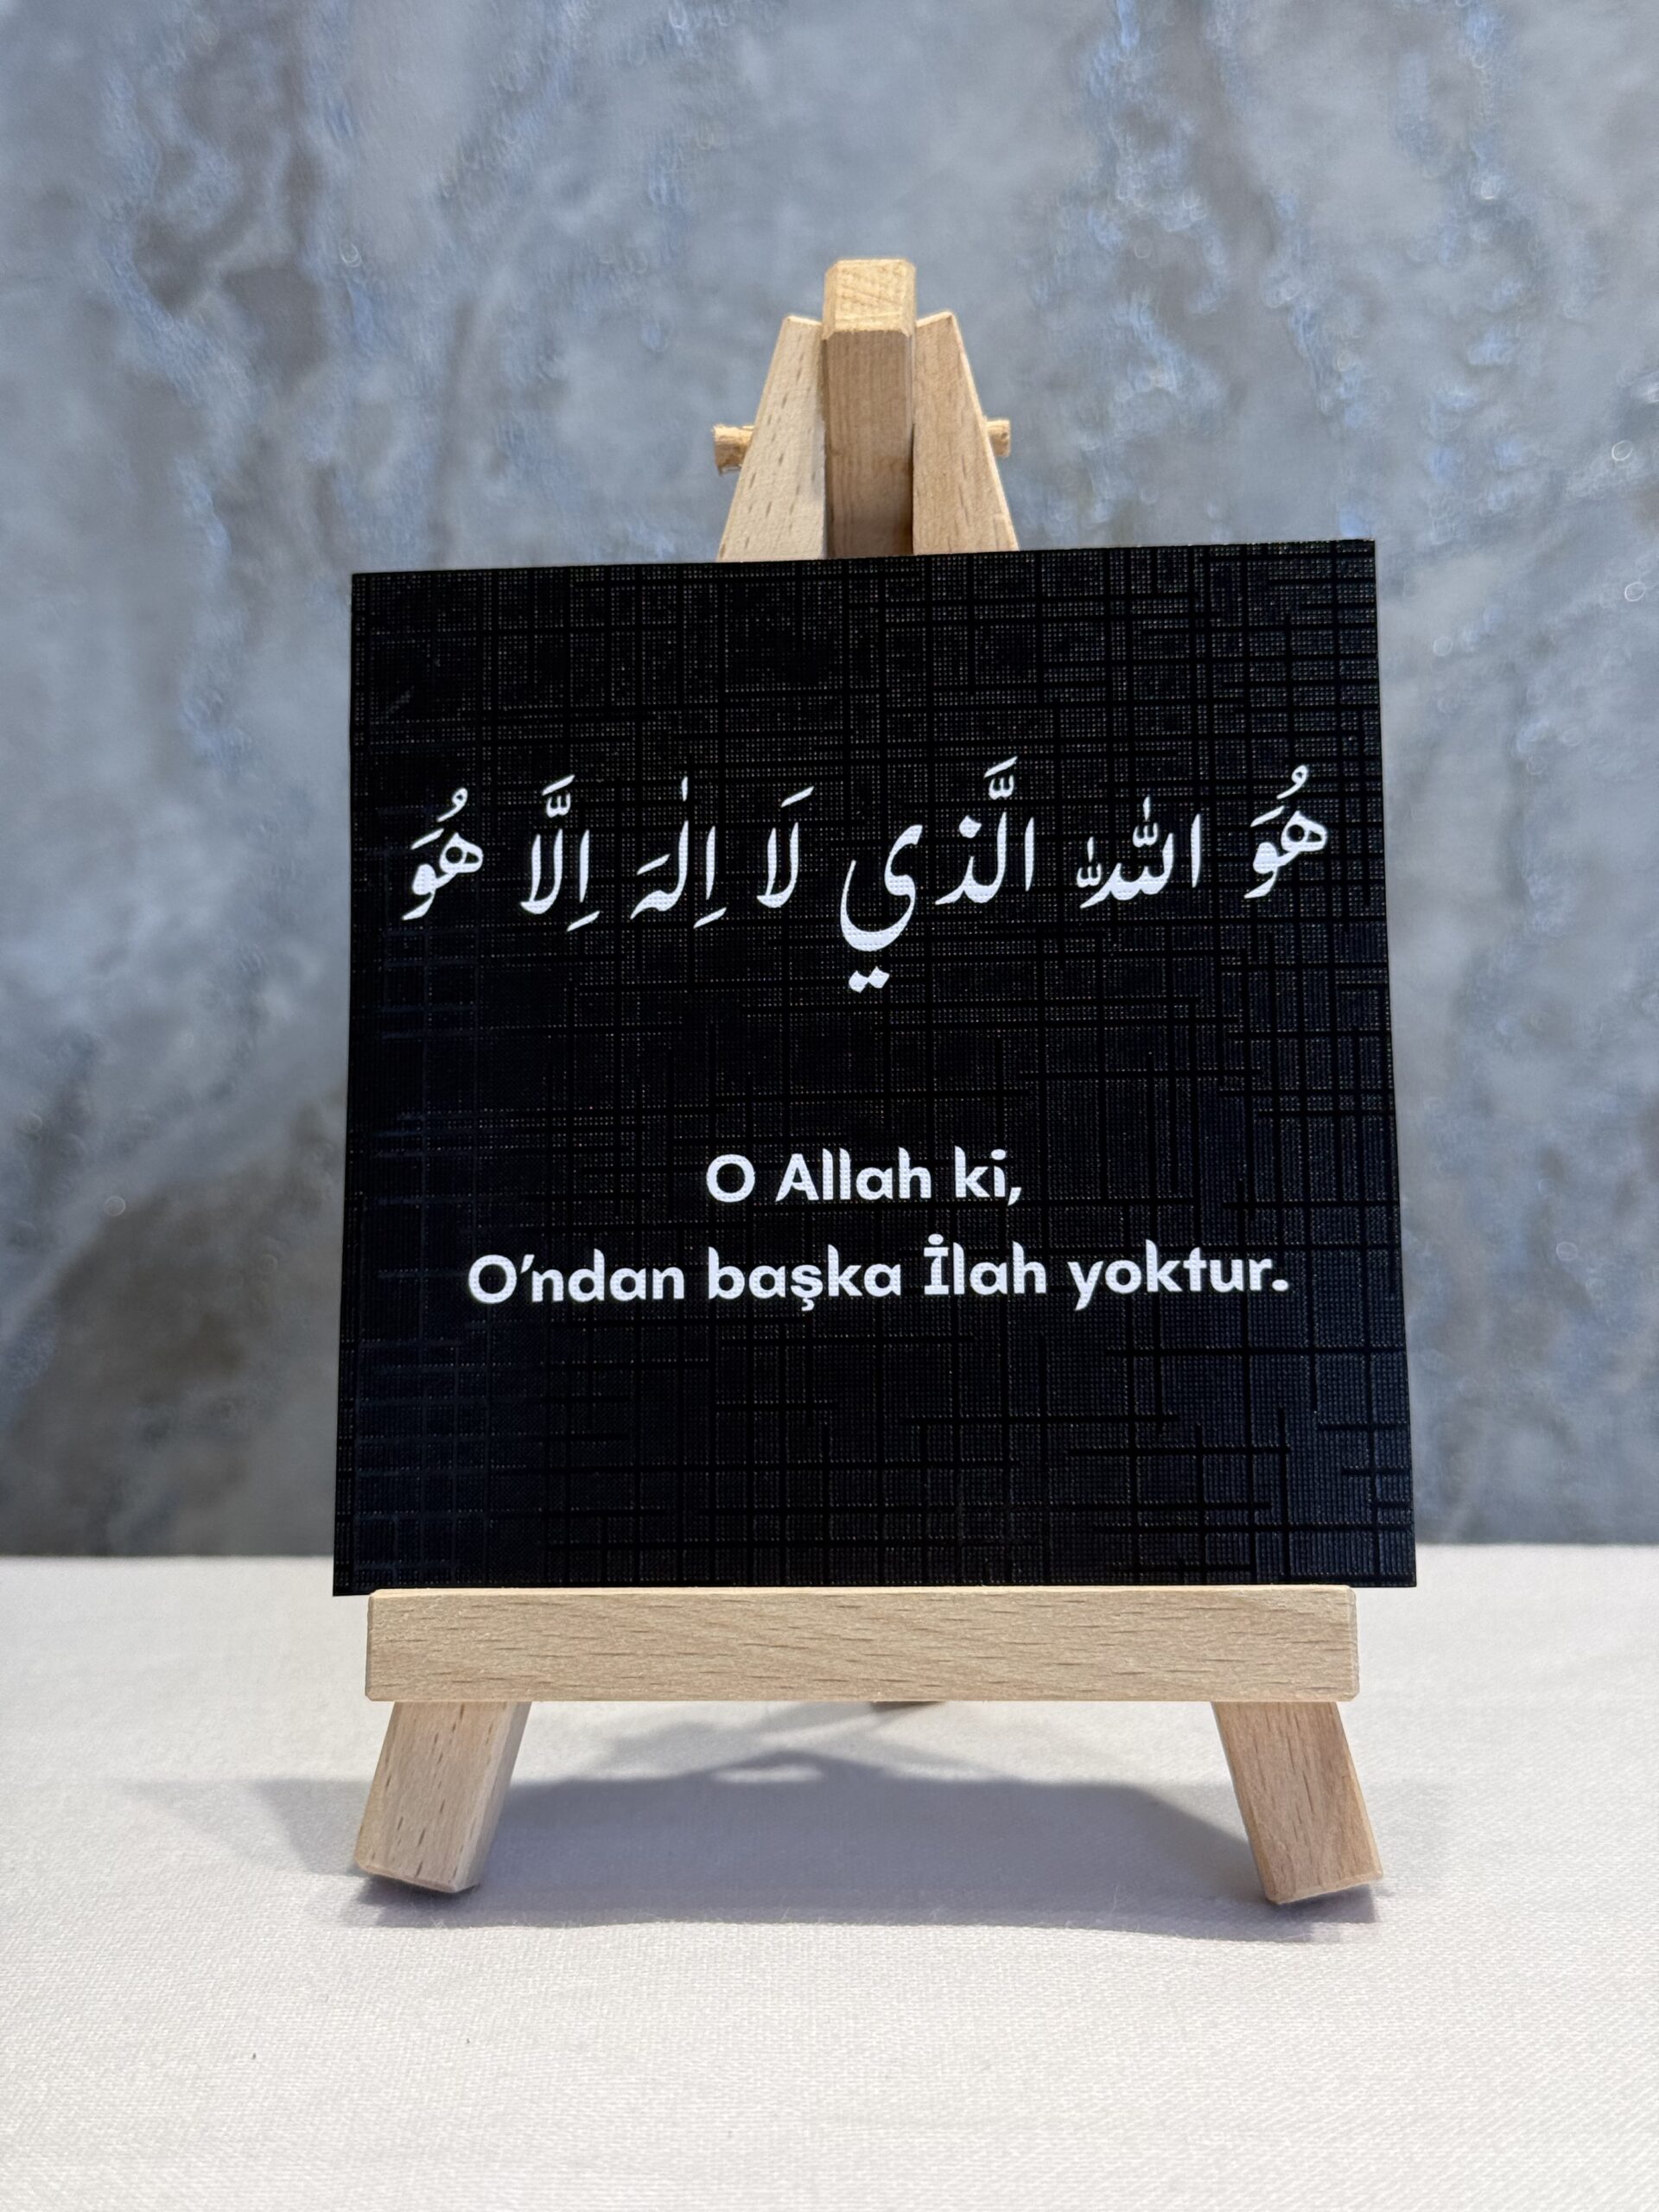 هُوَ اللّٰهُ الَّذي لَا اِلٰهَ اِلَّا هُوَ
O Allah ki,
O'ndan başka İlah yoktur.